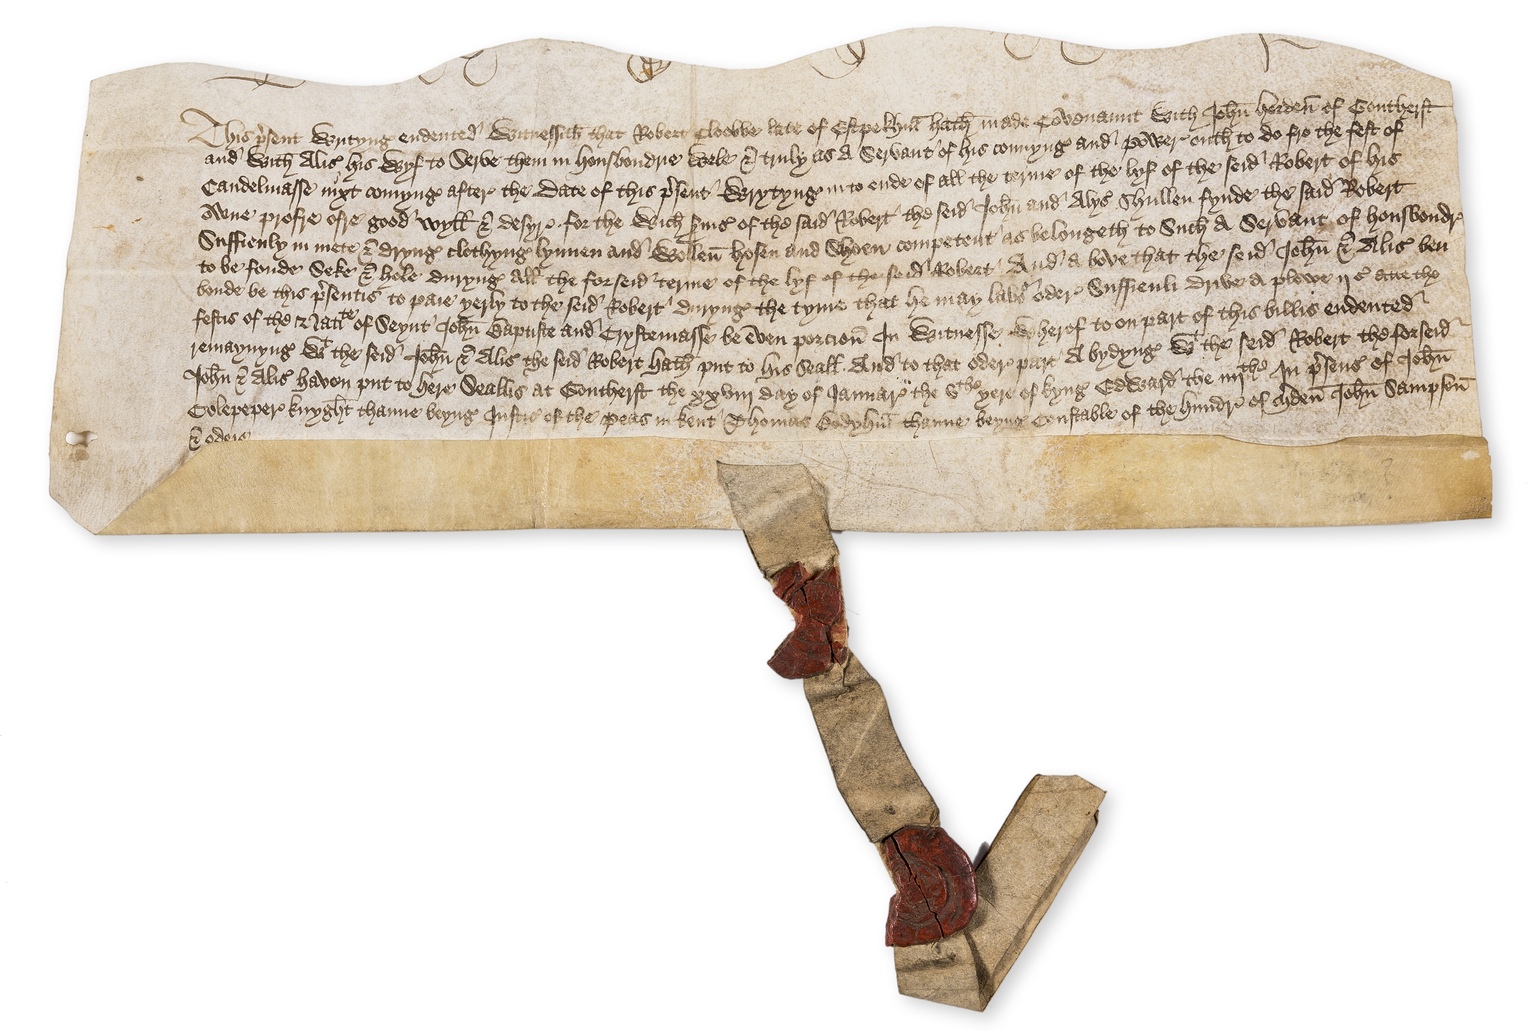 This p̄sent Wrytyng endented Witnessith that Robert Clobbe late of hath made Covenaunt With John̄ herden̄ of Goutherst
and With Alis his Wyf to Serve them in housbondrie Wele & truly as A Servant of his connyng and power outh to do fro the fest of
Candelmasse nixt comyng after the Date of this p̄sent Wrytyng in to ende of all the terme of the lyf of the seid Robert of his
Awne profre ofre good Wyll & desyr for the Wich of the said Robert the seid John̄ and Alys Shullen fynde the said Robert
Suffienly in mete & dryng clothyng lynnen and Wollen̄ hosen and Shoen competent as belongeth to Such A Servant of housbondr
to be founde Seke & hele duryng all the forseid terme of the lyf of the seid Robert And a bove that the seid John̄ & Alis ben
bonde be this p̄sentis to paie yerly to the seid Robert duryng the tyme that he may labr oder Suffienli drive A plowe atte the
festis of the Natite of Seynt John̄ Baptiste and Crystemasse be even porcion̄ In Witnesse Wherof to on part of this billis endented
remaynyng Wt the seid John̄ & Alis the seid Robert hath put to his Seall And to that oder part Abydyng Wt the seid Robert the forseid
John̄ & Alis haven put to here Seallis at Goutherst the xxviii day of Januar the vthe yere of kyng Edward the iiijthe In p̄sens of John̄
Colepeper knyght thanne beyng Justic of the Peas in kent Thomas thanne beyng Constable of the hundr of John̄ Sampson̄
& oders